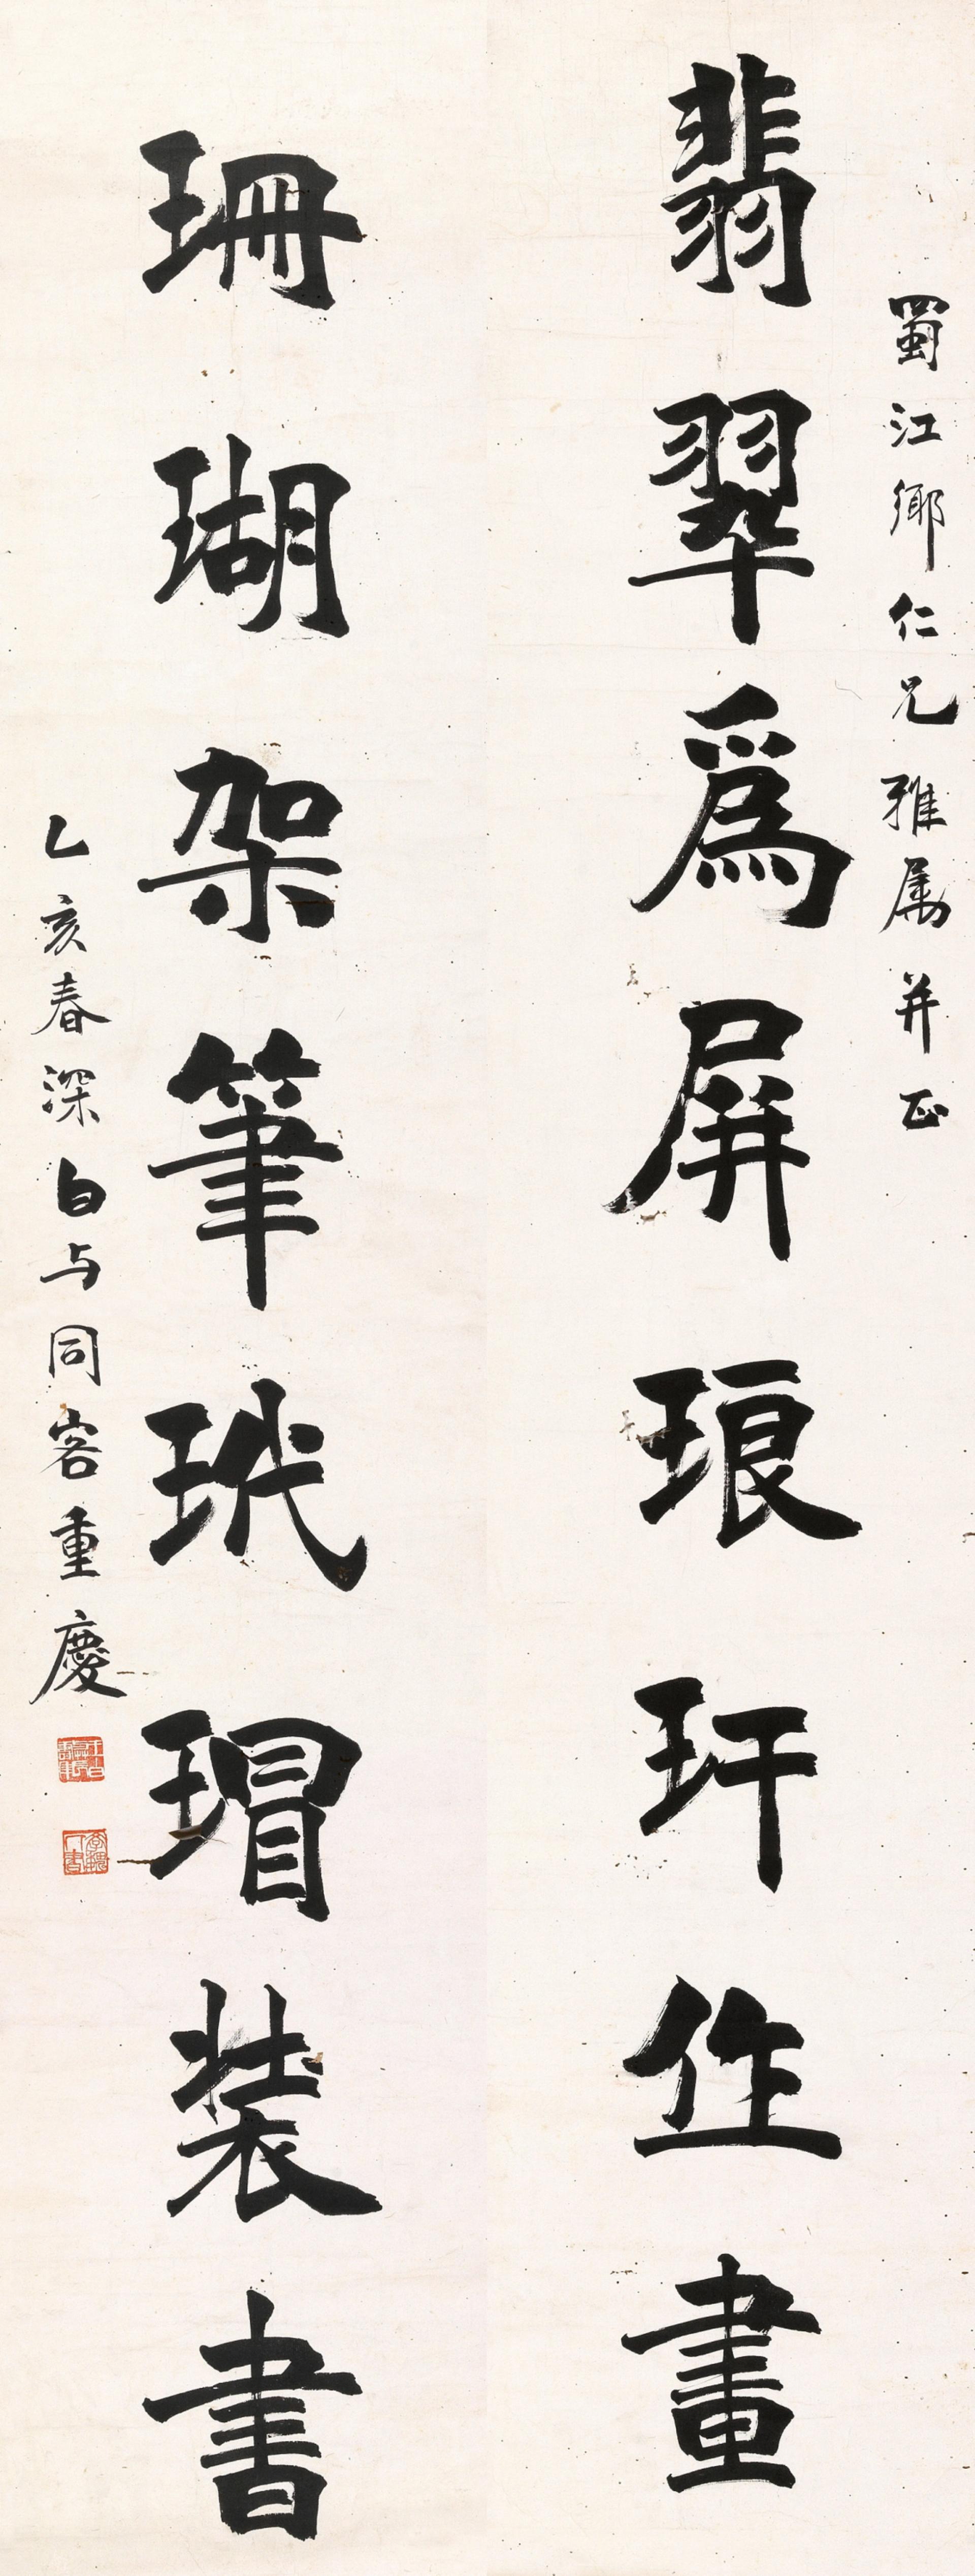 蜀江鄉仁兄雅屬并正
翡翠爲屏琅玕作畫
珊瑚架筆玳瑁裝書
乙亥春深白与同客重慶